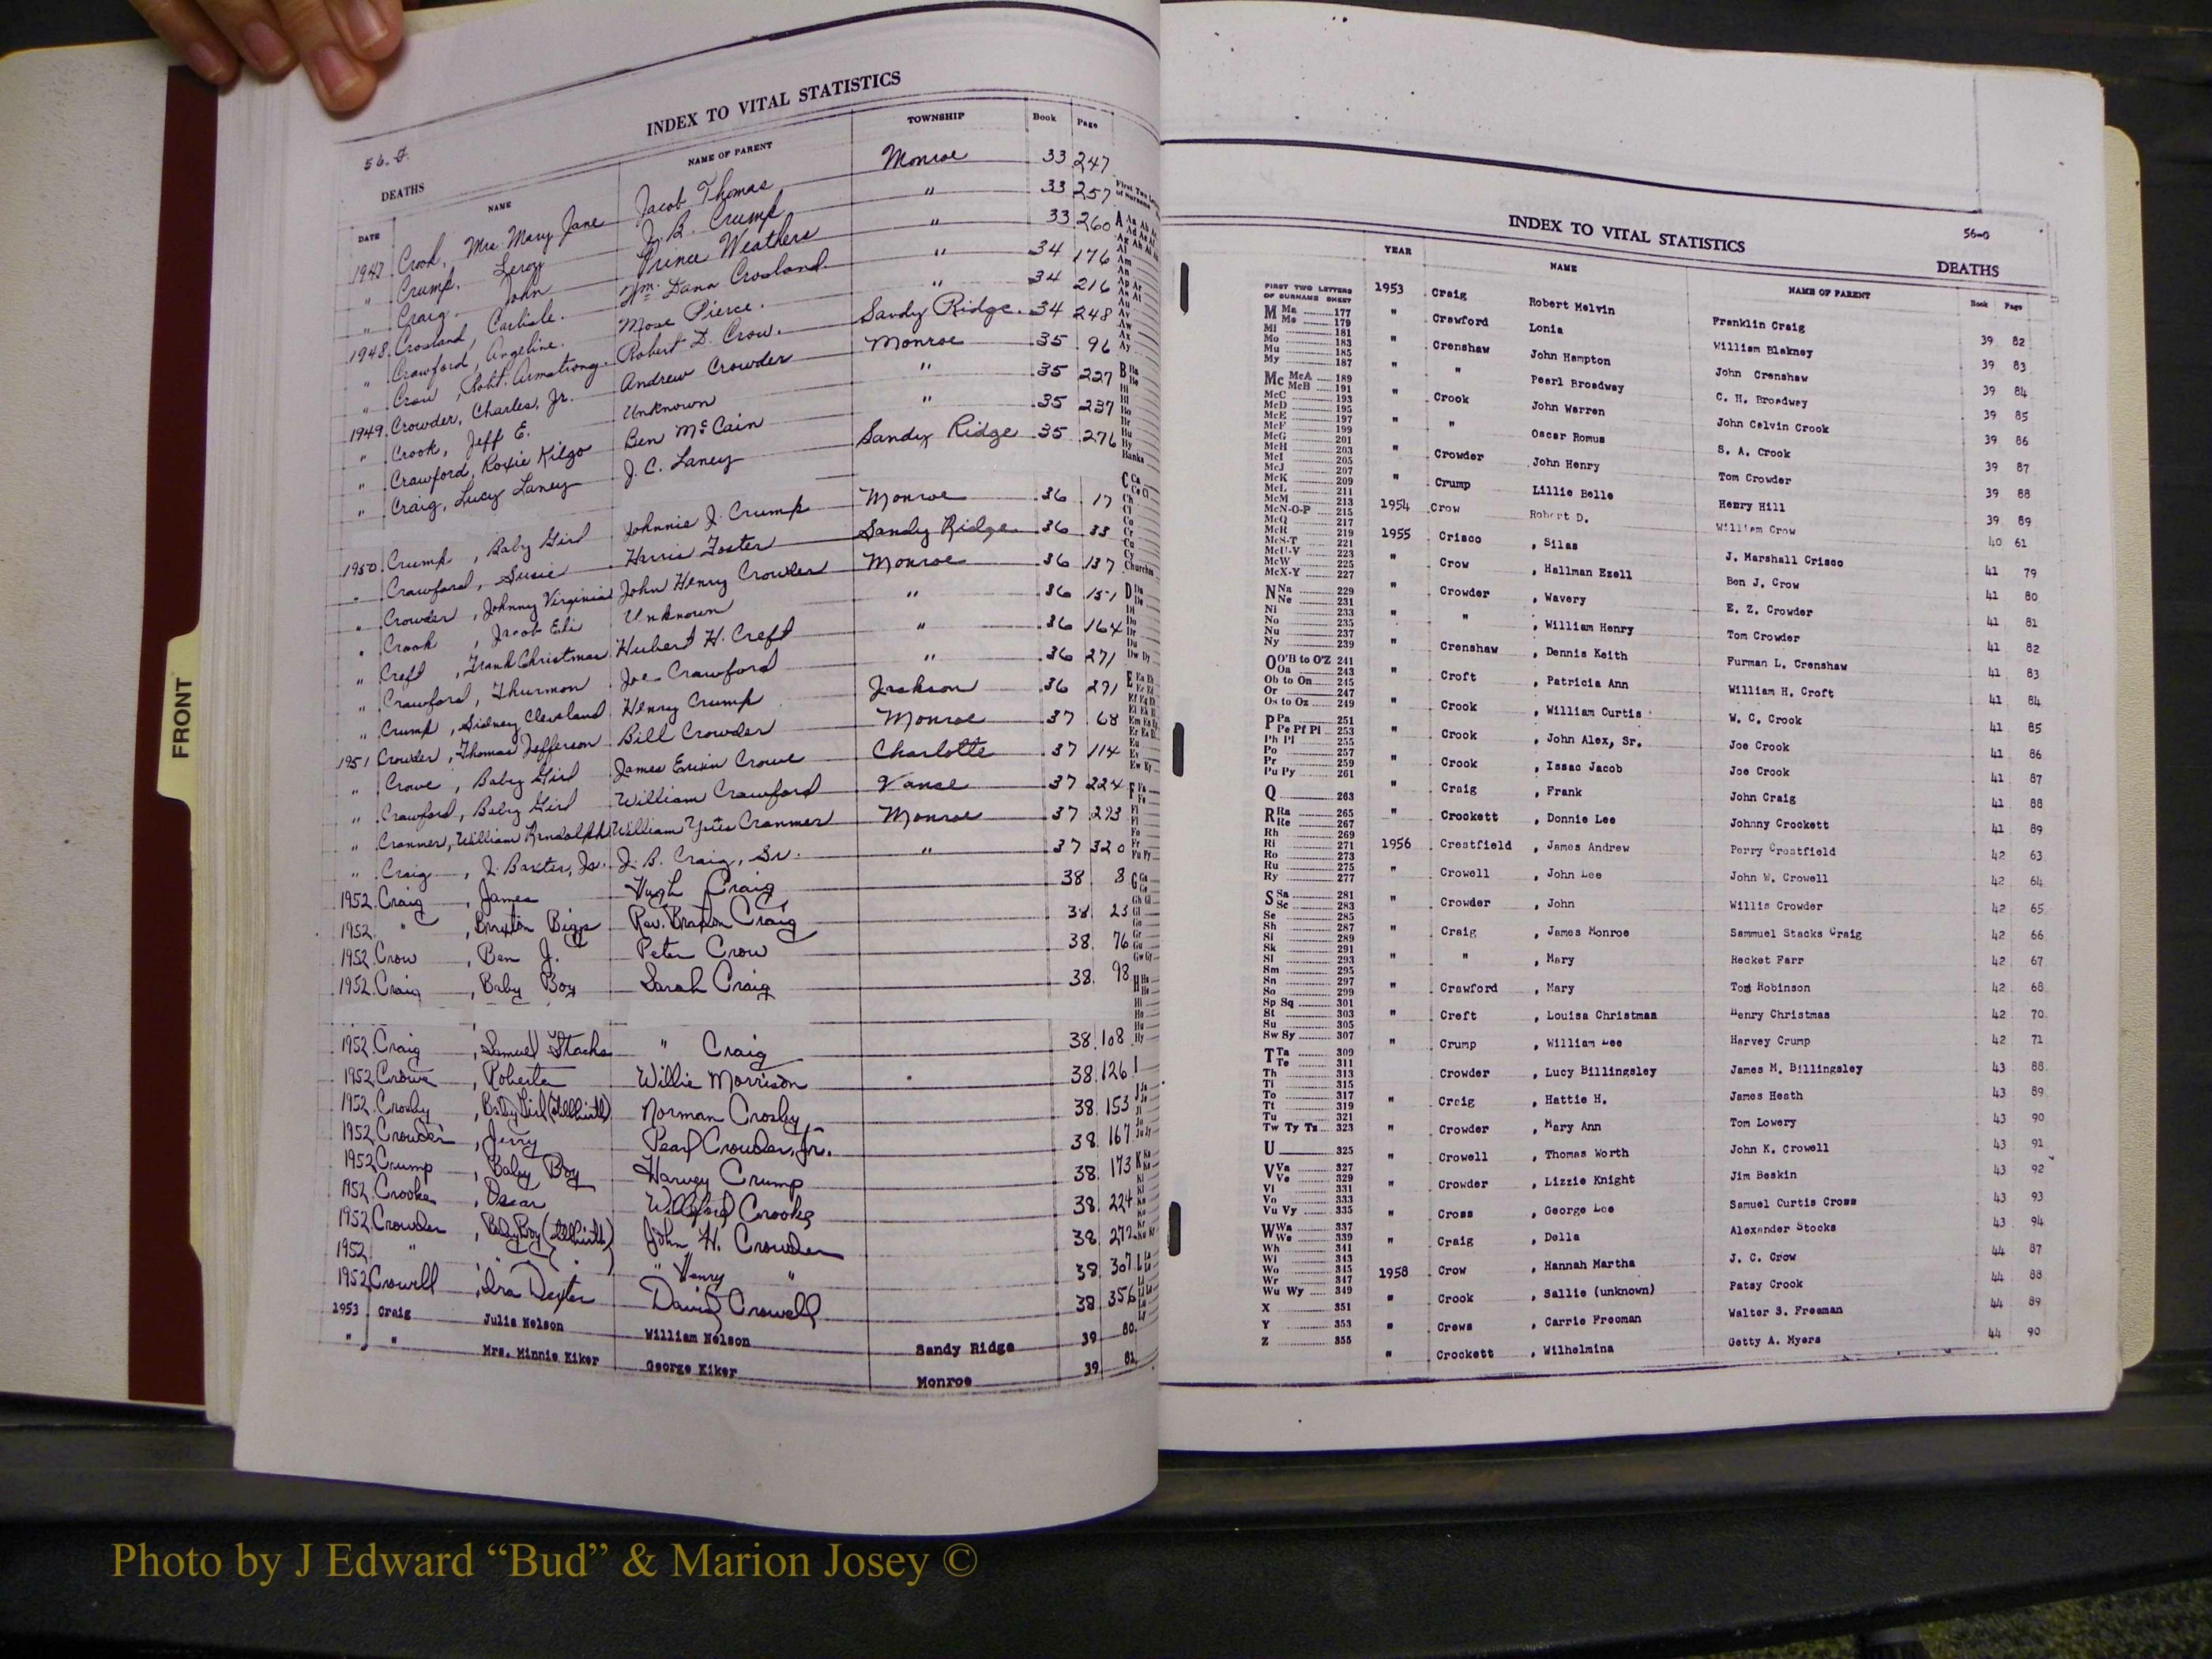 FRONT
56-F.
INDEX TO VITAL STATISTICS
DEATHS
DATE NAME NAME OF PARENT TOWNSHIP Book Page
1947 Crook, Mrs. Mary Jane Jacob Thomas Monroe 33 247
" Crump, Leroy J. B. Crump " 33 257
" Craig, John Prince Weathers " 33 260
1948 Crosland, Carlisle. Wm. Dana Crosland " 34 176
" Crawford, Angeline. Mose Pierce. " 34 216
" Crow, Robt. Armstrong. Robert D. Crow. Sandy Ridge. 34 248
1949 Crowder, Charles, Jr. Andrew Crowder Monroe 35 96
" Crook, Jeff E. Unknown " 35 227
" Crawford, Roxie Kilgo Ben McCain " 35 237
" Craig, Lucy Laney J. C. Laney Sandy Ridge 35 276
1950 Crump, Baby Girl Johnnie J. Crump Monroe 36 17
" Crawford, Susie Harris Foster Sandy Ridge 36 33
" Crowder, Johnny Virginia John Henry Crowder Monroe 36 137
" Crook, Jacob Eli Unknown " 36 151
" Creft, Frank Christmas Hubert H. Creft " 36 164
" Crawford, Thurmon Joe Crawford " 36 271
" Crump, Sidney Cleveland Henry Crump Jackson 36 291
1951 Crowder, Thomas Jefferson Bill Crowder Monroe 37 68
" Crowe, Baby Girl James Ervin Crowe Charlotte 37 114
" Crawford, Baby Girl William Crawford Vanse 37 224
" Cranmer, William Randolph William Yates Cranmer Monroe 37 293
" Craig, J. Baxter, Jr. J. B. Craig, Sr. " 37 320
1952 Craig, James Hugh Craig 38 8
1952 " , Braxton Biggs Rev. Braxton Craig 38 25
1952 Crow, Ben J. Peter Crow 38 76
1952 Craig, Baby Boy Sarah Craig 38 98
1952 Craig, Samuel Stacks " Craig 38 108
1952 Crowe, Roberta Willie Morrison 38 126
1952 Crosby, Baby Girl (stillbirth) Norman Crosby 38 153
1952 Crowder, Jerry Pearl Crowder, Jr. 38 167
1952 Crump, Baby Boy Harvey Crump 38 173
1952 Crooke, Oscar Williford Crooke 38 224
1952 Crowder, Baby Boy (stillbirth) John H. Crowder 38 272
1952 " , " " ( " ) " Henry " 38 307
1952 Crowell, Ira Dexter David Crowell 38 356
1953 Craig Julia Nelson William Nelson Sandy Ridge 39 80
" " Mrs. Minnie Kiker George Kiker Monroe 39 81
56-G
INDEX TO VITAL STATISTICS
DEATHS
YEAR NAME NAME OF PARENT Book Page
1953 Craig Robert Melvin Franklin Craig 39 82
" Crawford Lonia William Blakney 39 83
" Crenshaw John Hampton John Crenshaw 39 84
" " Pearl Broadway C. H. Broadway 39 85
" Crook John Warren John Calvin Crook 39 86
" " Oscar Romus S. A. Crook 39 87
" Crowder John Henry Tom Crowder 39 88
" Crump Lillie Belle Henry Hill 39 89
1954 Crow Robert D. William Crow 40 61
1955 Crisco, Silas J. Marshall Crisco 41 79
" Crow, Hallman Ezell Ben J. Crow 41 80
" Crowder, Wavery E. Z. Crowder 41 81
" " , William Henry Tom Crowder 41 82
" Crenshaw, Dennis Keith Furman L. Crenshaw 41 83
" Croft, Patricia Ann William H. Croft 41 84
" Crook, William Curtis W. C. Crook 41 85
" Crook, John Alex, Sr. Joe Crook 41 86
" Crook, Issac Jacob Joe Crook 41 87
" Craig, Frank John Craig 41 88
" Crockett, Donnie Lee Johnny Crockett 41 89
1956 Crestfield, James Andrew Perry Crestfield 42 63
" Crowell, John Lee John W. Crowell 42 64
" Crowder, John Willis Crowder 42 65
" Craig, James Monroe Sammuel Stacks Craig 42 66
" " , Mary Hecket Farr 42 67
" Crawford, Mary Tom Robinson 42 68
" Creft, Louisa Christmas Henry Christmas 42 70
" Crump, William Lee Harvey Crump 42 71
Crowder, Lucy Billingsley James M. Billingsley 43 88
" Craig, Hattie H. James Heath 43 89
" Crowder, Mary Ann Tom Lowery 43 90
" Crowell, Thomas Worth John K. Crowell 43 91
" Crowder, Lizzie Knight Jim Baskin 43 92
" Cross, George Lee Samuel Curtis Cross 43 93
" Craig, Della Alexander Stocks 43 94
1958 Crow, Hannah Martha J. C. Crow 44 87
" Crook, Sallie (unknown) Patsy Crook 44 88
" Crews, Carrie Freeman Walter S. Freeman 44 89
" Crockett, Wilhelmina Getty A. Myers 44 90
FIRST TWO LETTERS
OF SURNAME SHEET
M Ma 177
Me 179
Mi 181
Mo 183
Mu 185
My 187
Mc McA 189
McB 191
McC 193
McD 195
McE 197
McF 199
McG 201
McH 203
McI 205
McJ 207
McK 209
McL 211
McM 213
McN-O-P 215
McQ 217
McR 219
McS-T 221
McU-V 223
McW 225
McX-Y 227
N Na 229
Ne 231
Ni 233
No 235
Nu 237
Ny 239
O O'B to O'Z 241
Oa 243
Ob to On 245
Or 247
Os to Oz 249
P Pa 251
Pe Pf Pi 253
Ph Pl 255
Po 257
Pr 259
Pu Py 261
Q 263
R Ra 265
Re 267
Rh 269
Ri 271
Ro 273
Ru 275
Ry 277
S Sa 281
Sc 283
Se 285
Sh 287
Si 289
Sk 291
Sl 293
Sm 295
Sn 297
So 299
Sp Sq 301
St 303
Su 305
Sw Sy 307
T Ta 309
Te 311
Th 313
Ti 315
To 317
Tt 319
Tu 321
Tw Ty Tz 323
U 325
V Va 327
Ve 329
Vi 331
Vo 333
Vu Vy 335
W Wa 337
We 339
Wh 341
Wi 343
Wo 345
Wr 347
Wu Wy 349
X 351
Y 353
Z 355
Photo by J Edward “Bud” & Marion Josey ©